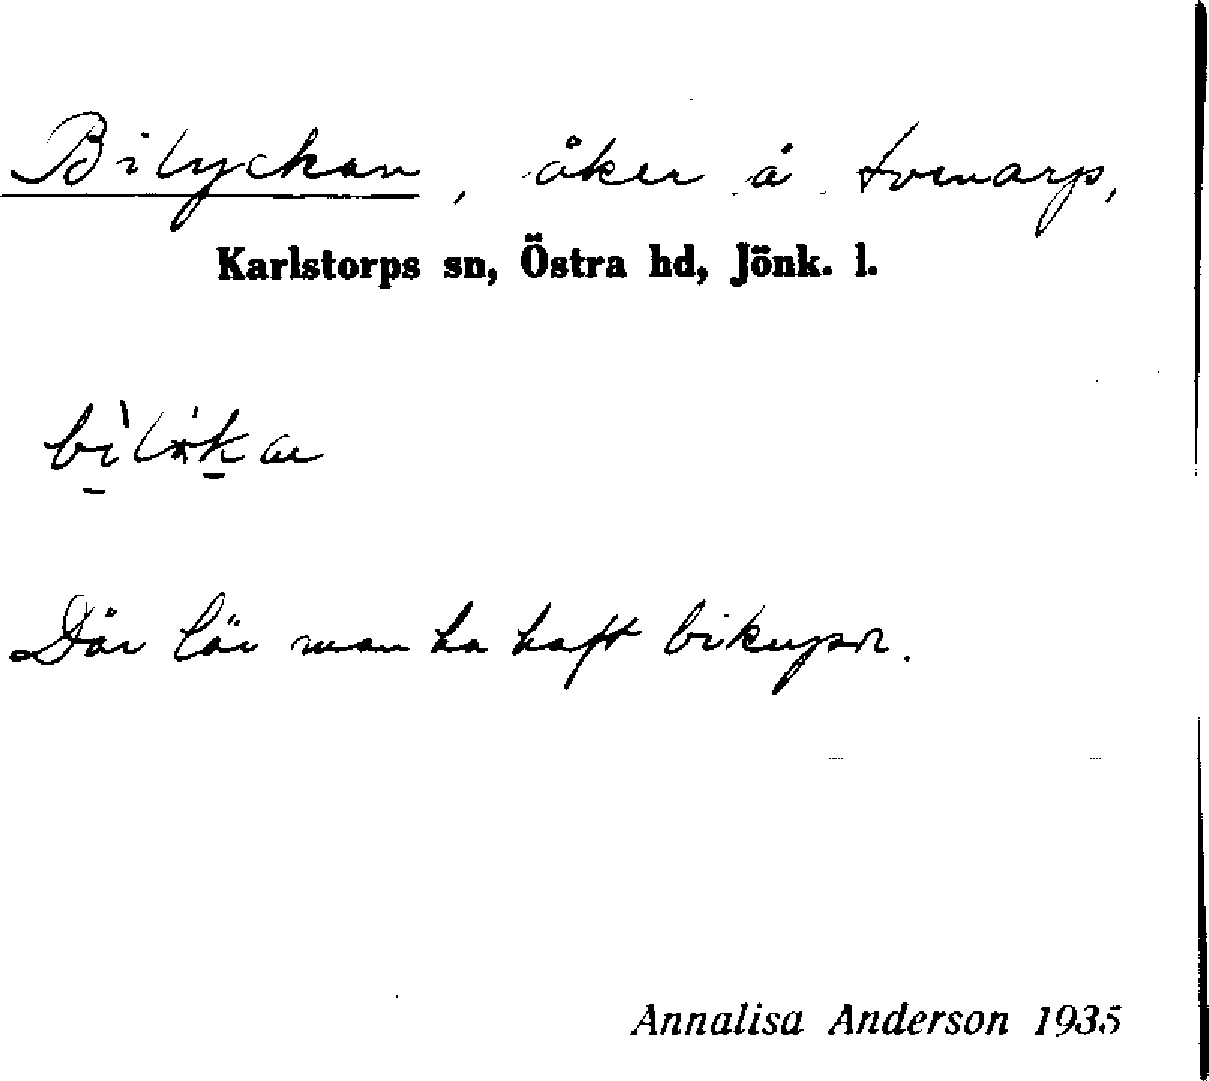 Bilyckan, åker å
Karlstorps sn, Östra hd, Jönk. l.
Där lär man ha haft bikupor.
Annalisa Anderson 1935